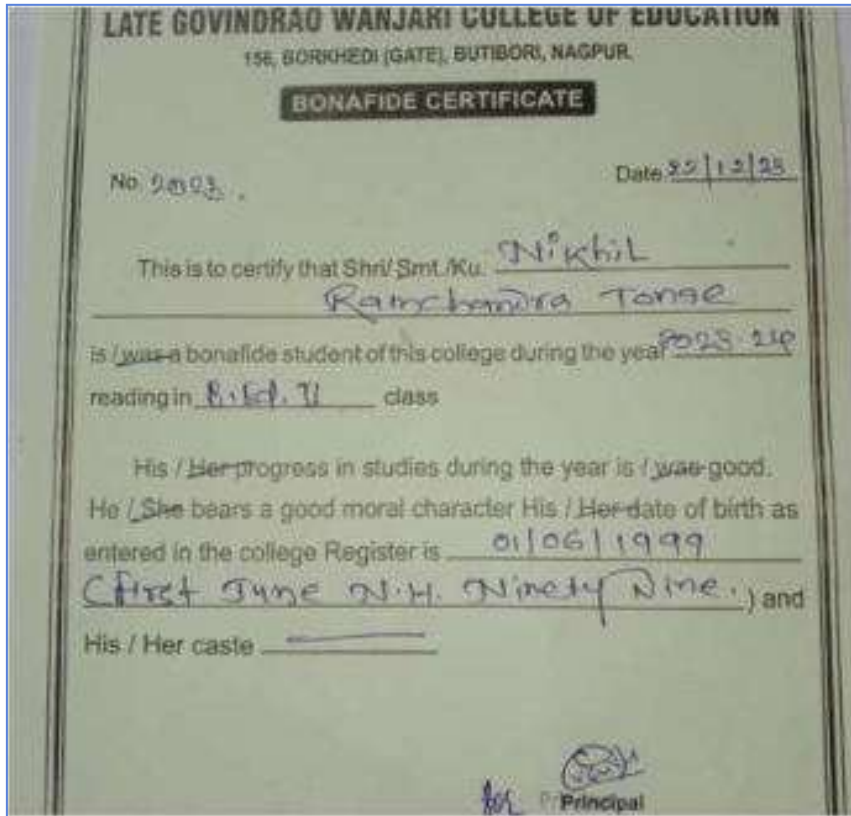 LATE GOVINDRAO WANJARI COLLEGE OF EDUCATION
156, BORKHEDI (GATE), BUTIBORI, NAGPUR.
BONAFIDE CERTIFICATE
No. 2023. Date 22/12/23
This is to certify that Shri/Smt./Ku. Nikhil
Ramchandra Tonge
is / was a bonafide student of this college during the year 2023-24
reading in B.Ed. II class
His / Her progress in studies during the year is / was good.
He / She bears a good moral character His / Her date of birth as
entered in the college Register is 01/06/1999
(first June N.H. Ninety Nine.) and
His / Her caste
for Principal